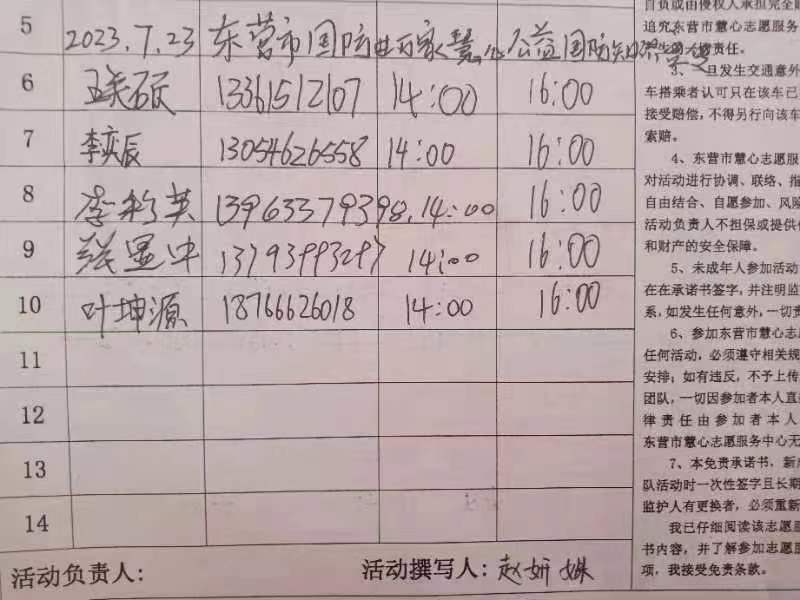 5 2023.7.23 东营市国防进万家慧心公益国防知
6 13361512107 14:00 16:00
7 李奕辰 13054626558 14:00 16:00
8 李 英 13963379398. 14:00 16:00
9 张显中 13793993297 14:00 16:00
10 叶坤源 18766626018 14:00 16:00
11
12
13
14
活动负责人: 活动撰写人: 赵妍姝
自负或由侵权人承担完全赔
追究东营市慧心志愿服务
责任。
旦发生交通意外
车搭乘者认可只在该车已
接受赔偿，不得另行向该车
索赔。
4、东营市慧心志愿服
对活动进行协调、联络、指
自由结合、自愿参加、风险
活动负责人不担保或提供
和财产的安全保障。
5、未成年人参加活动
在在承诺书签字，并注明监
系，如发生任何意外，一切责
6、参加东营市慧心志
任何活动，必须遵守相关规
安排；如有违反，不予上传
团队，一切因参加者本人直
律责任由参加者本人
东营市慧心志愿服务中心无
7、本免责承诺书，新
队活动时一次性签字且长期
监护人有更换者，必须重新
我已仔细阅读该志愿服
书内容，并了解参加志愿服
项，我接受免责条款。